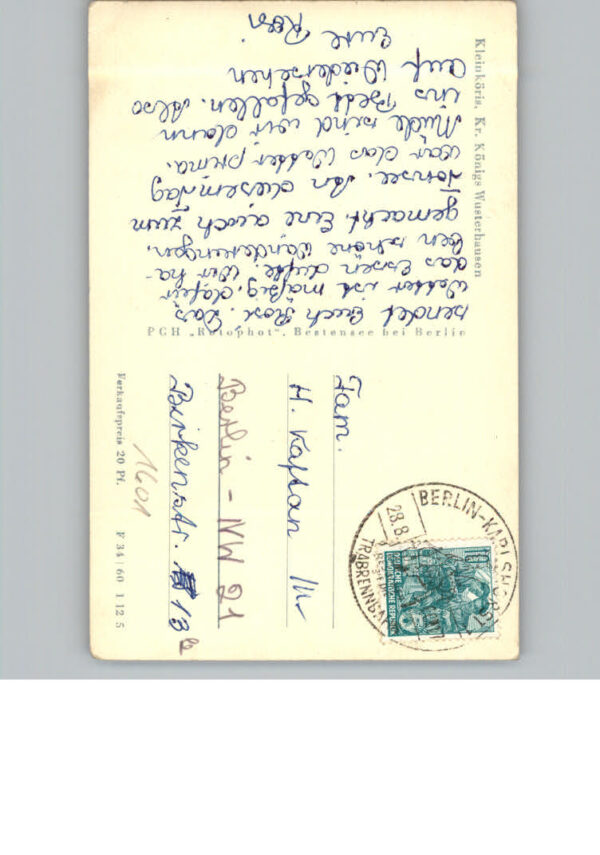 Kleinköris, Kr. Königs Wusterhausen
sendet Euch Rosi. Das
Wetter ist mäßig, dafür
das Essen dufte. Wir ha-
ben schöne Wanderungen
gemacht. Eine auch zum
Tonsee. An diesem Tag
war das Wetter prima.
Müde sind wir dann
ins Bett gefallen. Also
Auf Wiedersehen
Eure Rosi
PGH „Rotophot“, Bestensee bei Berlin
BERLIN-KARLSHORST
28.8.
TRABRENNBAHN
DEUTSCHE
DEMOKRATISCHE REPUBLIK
Fam.
H. Kaftan
Berlin - NW 21
Birkenstr. 13a
1601
Verkaufspreis 20 Pf. F 34 | 60 1 12 5